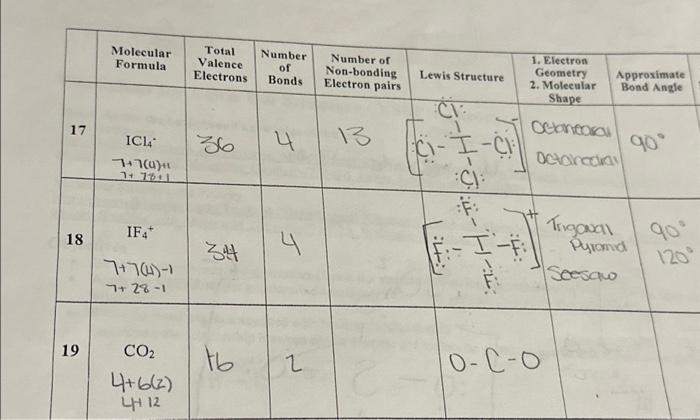 Molecular Formula
Total Valence Electrons
Number of Bonds
Number of Non-bonding Electron pairs
Lewis Structure
1. Electron Geometry
2. Molecular Shape
Approximate Bond Angle
17
ICl₄⁻
7+7(4)+1
7+28+1
36
4
13
[:Cl: :Cl-I-Cl: :Cl:]⁻
Octahedral
Octahedral
90°
18
IF₄⁺
7+7(4)-1
7+28-1
34
4
[:F: :F-I-F: :F:]⁺
Trigonal
Pyramid
Seesaw
90°
120°
19
CO₂
4+6(2)
4+12
16
2
O-C-O